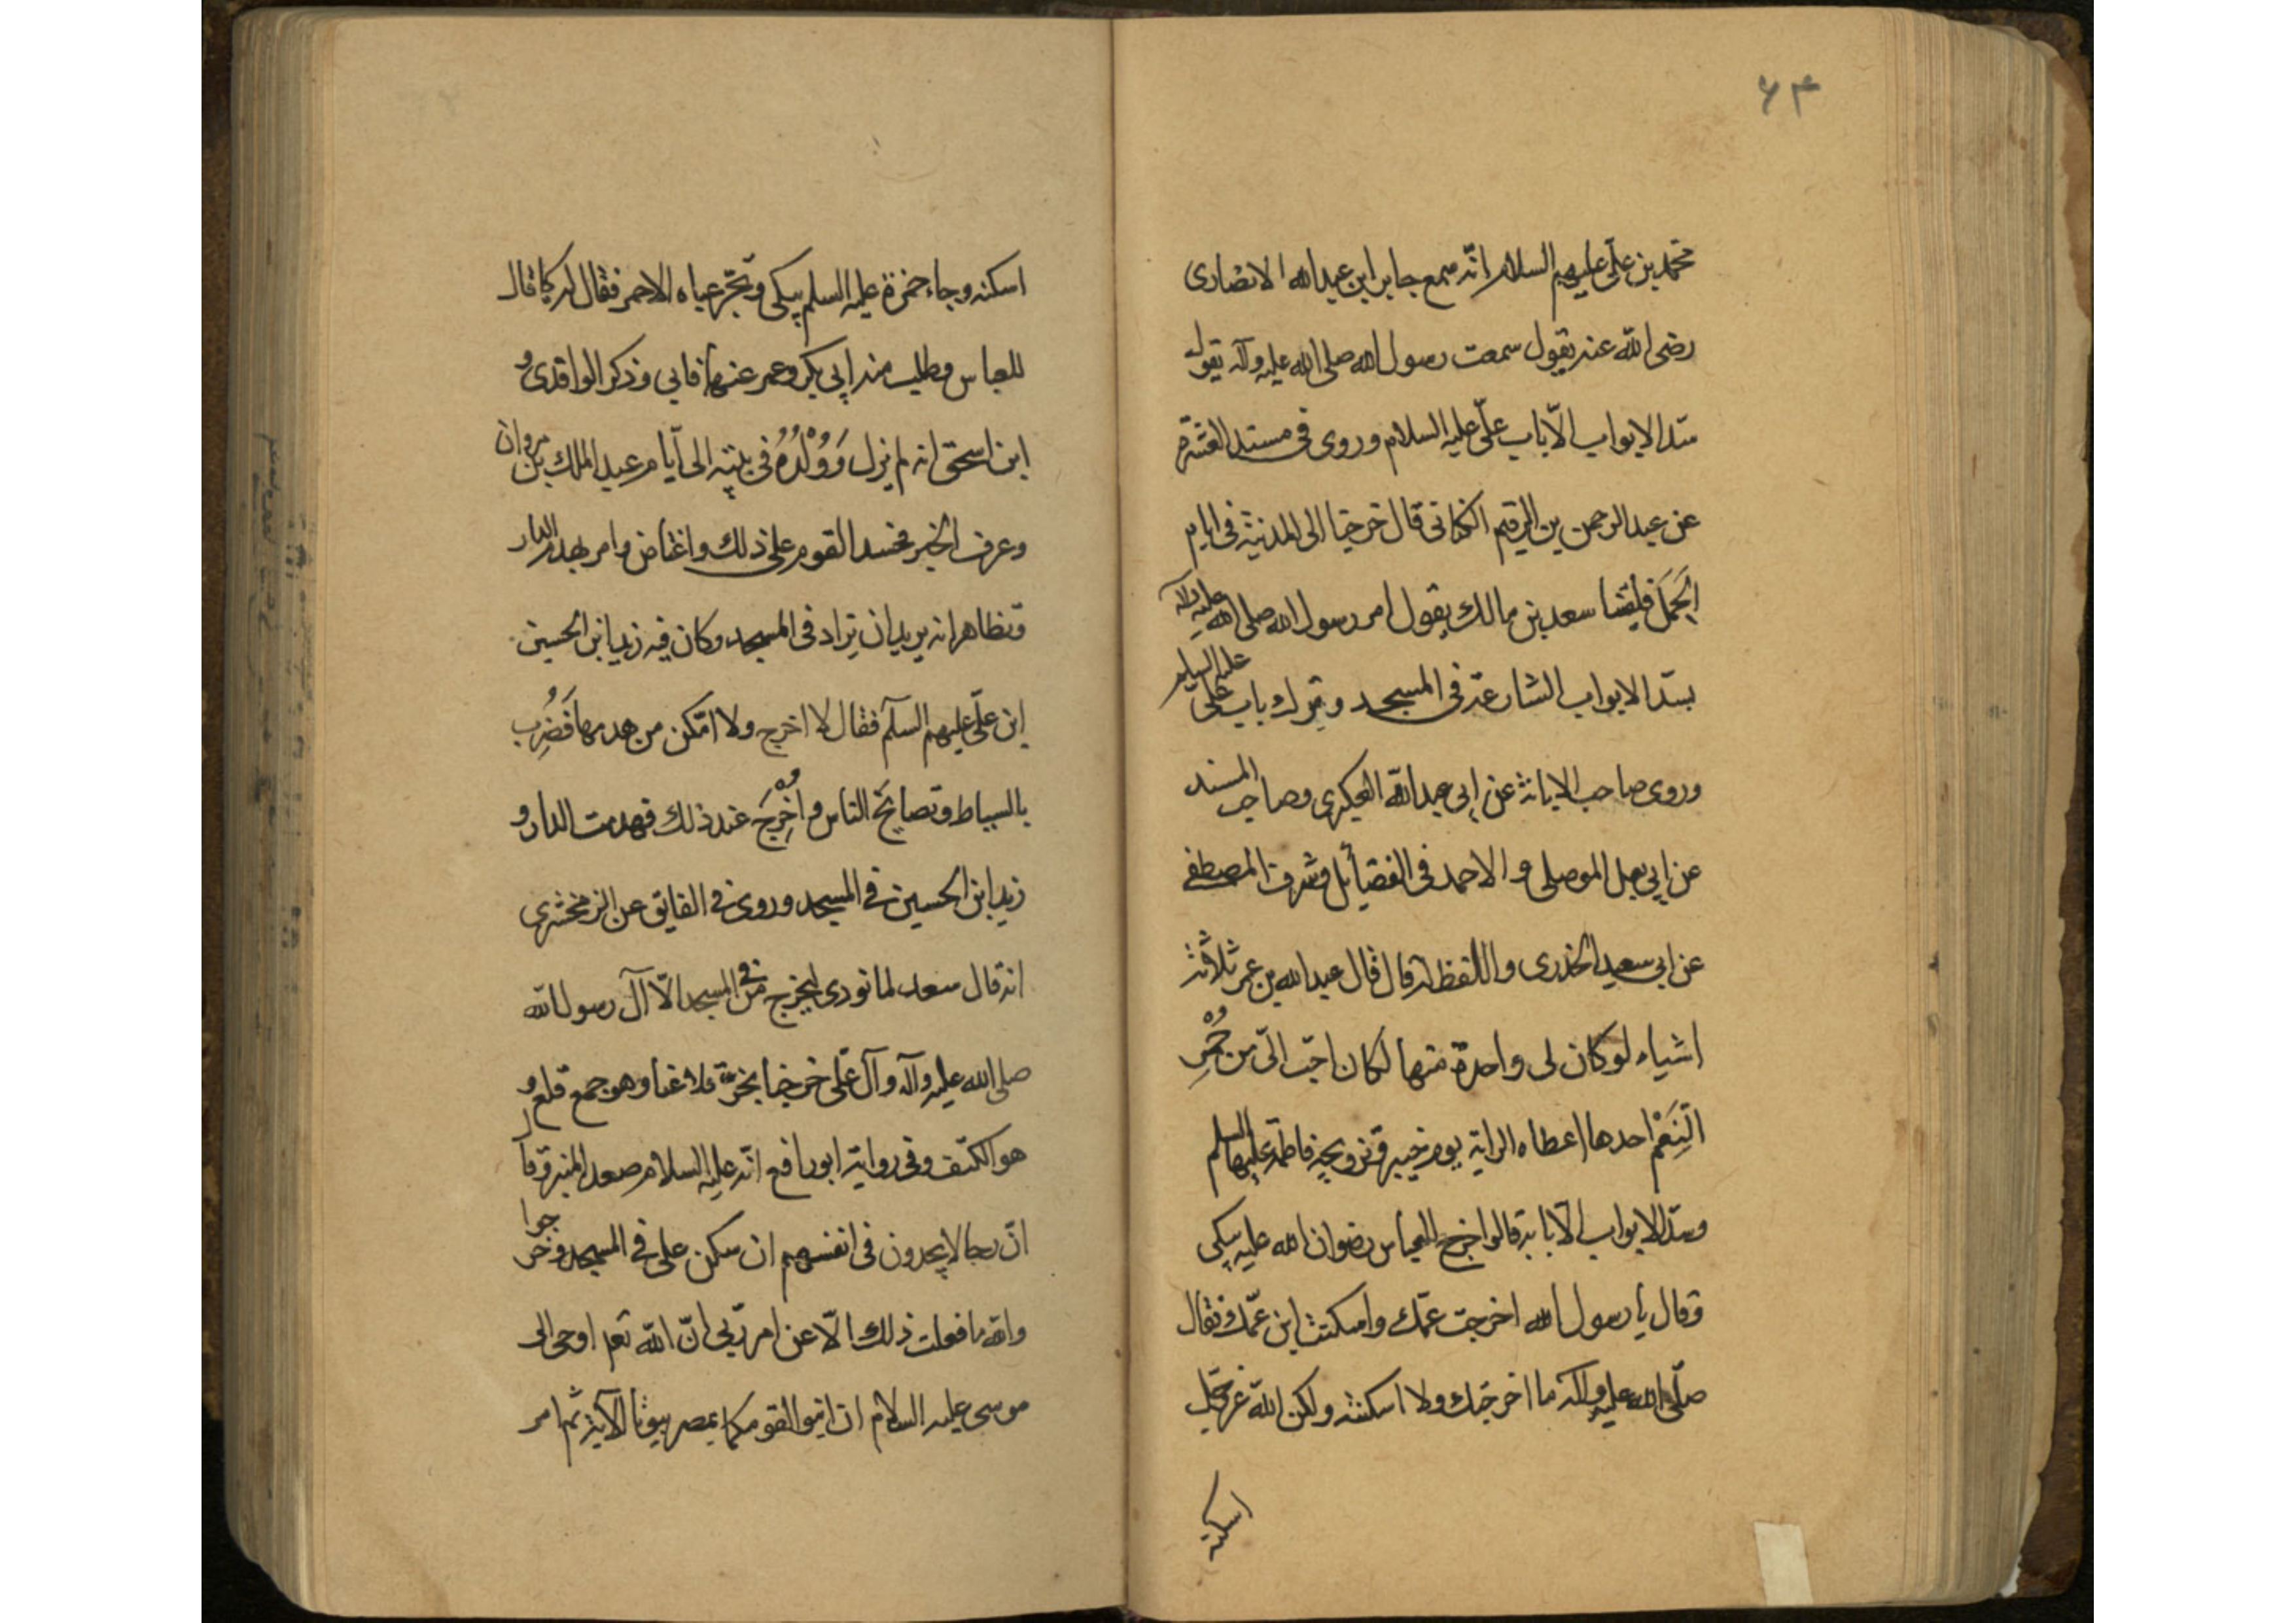 ۶۴
محمد بن علی علیهم السلام انه سمع جابر ابن عبد الله الانصاری
رضی الله عنه یقول سمعت رسول الله صلی الله علیه وآله یقول
سد الابواب الّا باب علیّ علیه السلام وروی فی مسند العشرة
عن عبد الرحمن بن الرقیم الکنانی قال خرجنا الی المدینة فی ایام
الجَمَل فلقینا سعد بن مالک یقول امر رسول الله صلی الله علیه وآله
بسدّ الابواب الشارعة فی المسجد وترک باب علی علیه السلم
وروی صاحب الابانة عن ابی عبد الله العکبری وصاحب المسند
عن ابی یعلی الموصلی والاحمد فی الفضایٔل وشرف المصطفی
عن ابی سعید الخدری واللفظ له قال قال عبد الله بن عمر ثلاثة
اشیاء لو کان لی واحدة منها لکان احبّ الیّ من حُمْرِ
النِعَمْ احدها اعطاه الرایة یوم خیبر وتزویجه فاطمة علیها السلم
وسدّ الابواب الّا بابه قالوا خرج العباس رضوان الله علیه یبکی
وقال یا رسول الله اخرجت عمّک واسکنت ابن عمّک فقال
صلّی الله علیه وآله ما اخرجتک ولا اسکنته ولکن الله عزّ وجلّ
اسکنه
اسکنه وجاء حمزة علیه السلم یبکی ویجّر عباه الاحمر فقال له کما قال
للعباس وطلب منه ابی بکر وعمر عنهما فابی وذکر الواقدی و
ابن اسحق انه لم یزل وَوُلْدُهُ فی بیته الی ایّام عبد الملک بن مروان
وعرف الخبر فحسد القوم علی ذلک واغتاض وامر بهدم الدار
وتظاهر انه یرید ان تزاد فی المسجد وکان فیه زید ابن الحسین
ابن علیّ علیهم السلم فقال لا اخرج ولا امّکن من هدمها فَضُرِبَ
بالسیاط وتصایَحَ الناس واُخْرِجَ عند ذلک فهدمت الدار و
زید ابن الحسین فی المسجد وروی فی الفایق عن الزمخشری
انه قال سعد لما نودی لیخرج من فی المسجد الّا آل رسول الله
صلی الله علیه وآله وآل علّی خرجنا بخرّ قلاعنا وهو جمع قلع و
هو الکنف وفی روایة ابو رافع انّه علیه السلام صعد المنبر وقال
انّ رجالا یجدون فی انفسهم ان سکن علی فی المسجد وخرجوا
والله ما فعلت ذلک الّا عن امر ربّی انّ الله تعم اوحی الی
موسی علیه السلام ان تبوا لقومکما بمصر بیوتا الآیة ثم امر